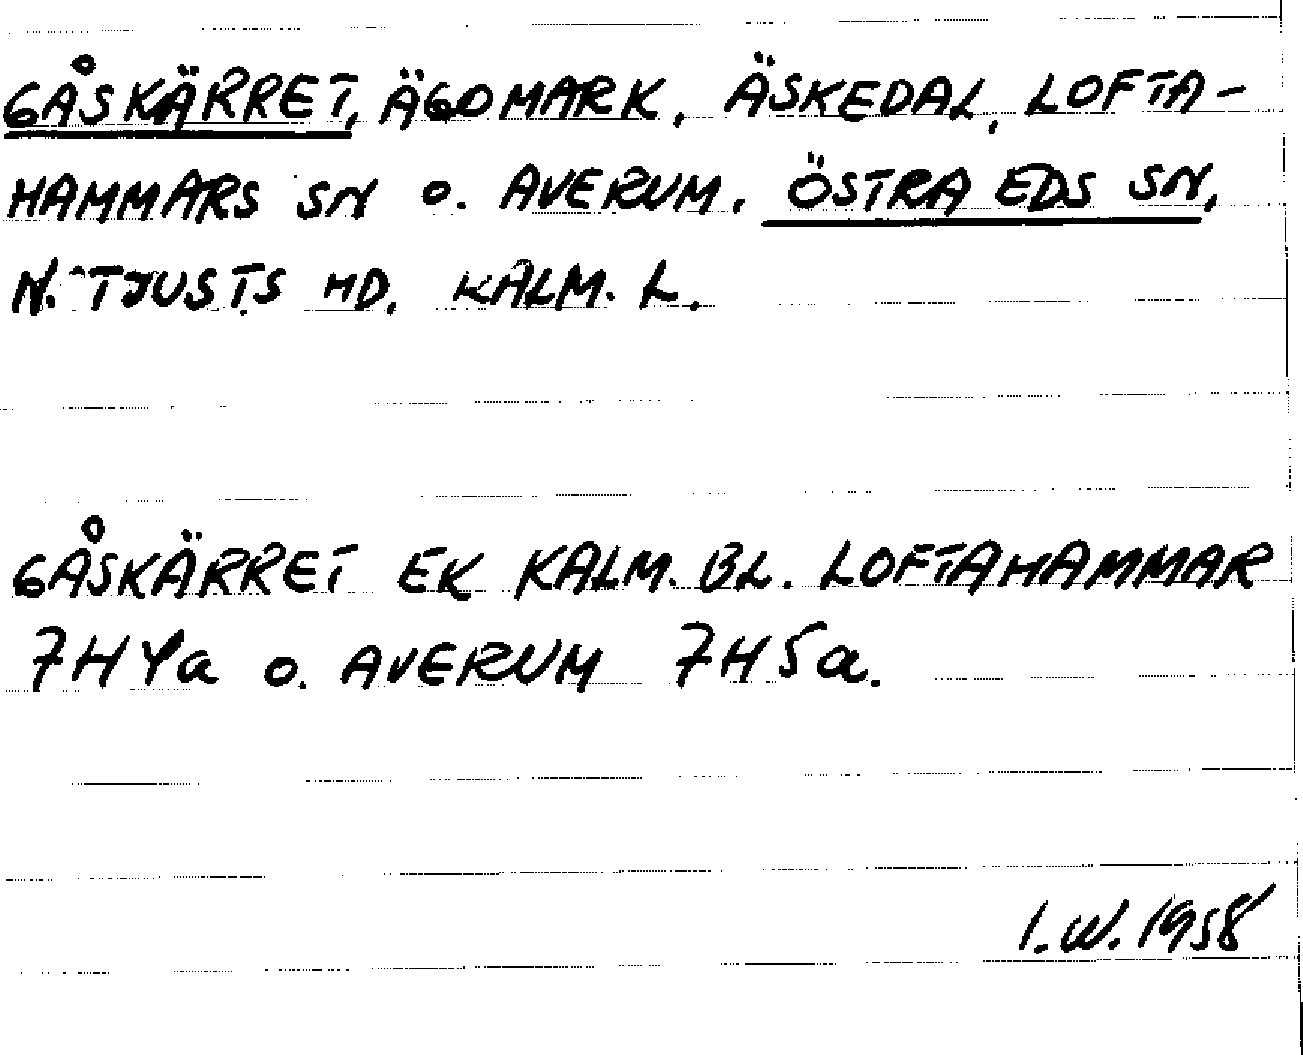 GÅSKÄRRET, ÄGOMARK, ÄSKEDAL, LOFTA-
HAMMARS SN O. AVERUM, ÖSTRA EDS SN,
N. TJUSTS HD. KALM. L.
GÅSKÄRRET EK KALM. BL. LOFTAHAMMAR
7H4a O. AVERUM 7H5a.
I.W. 1958